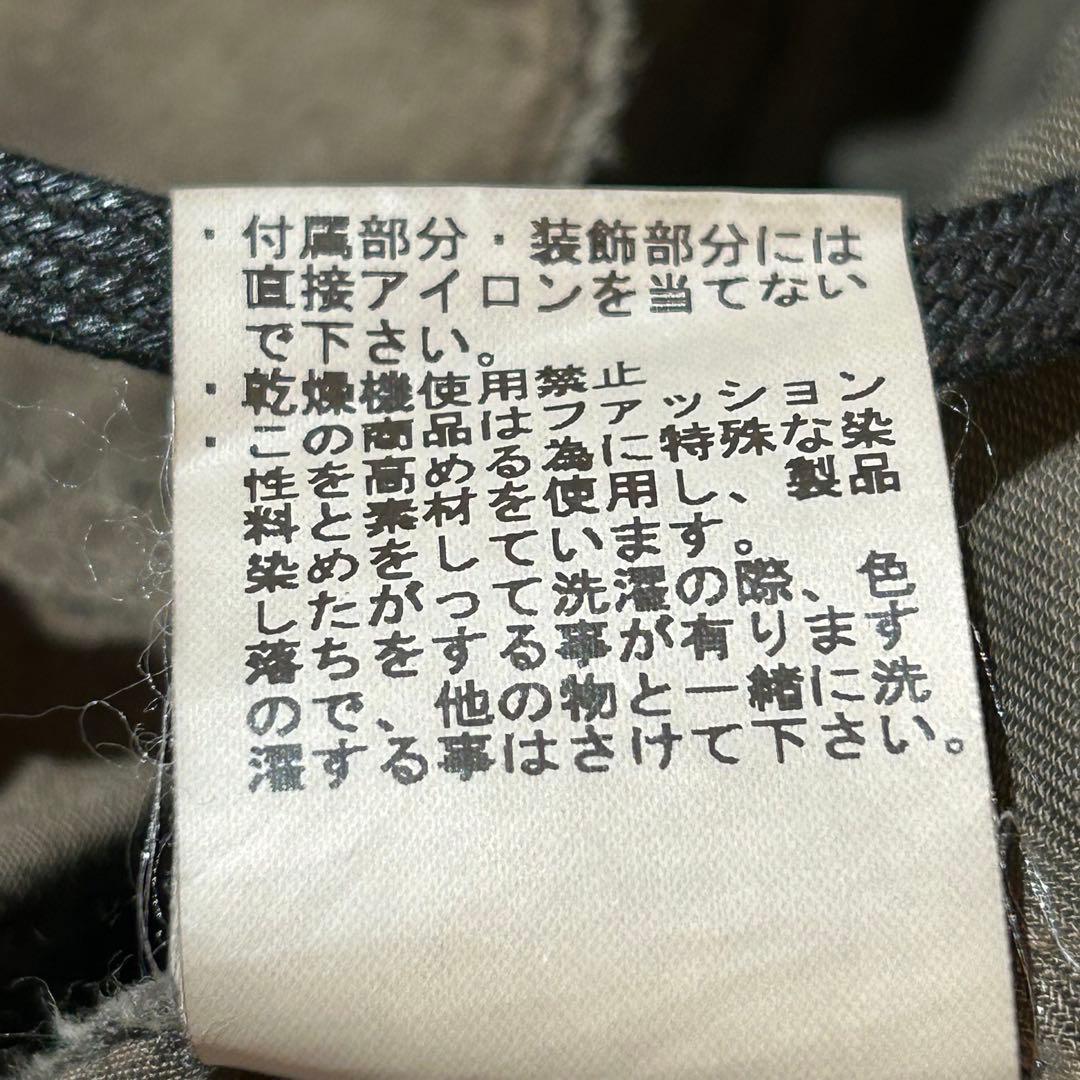 ・付属部分・装飾部分には
直接アイロンを当てない
で下さい。
・乾燥機使用禁止
・この商品はファッション
性を高める為に特殊な染
料と素材を使用し、製品
染めをしています。
したがって洗濯の際、色
落ちをする事が有ります
ので、他の物と一緒に洗
濯する事はさけて下さい。